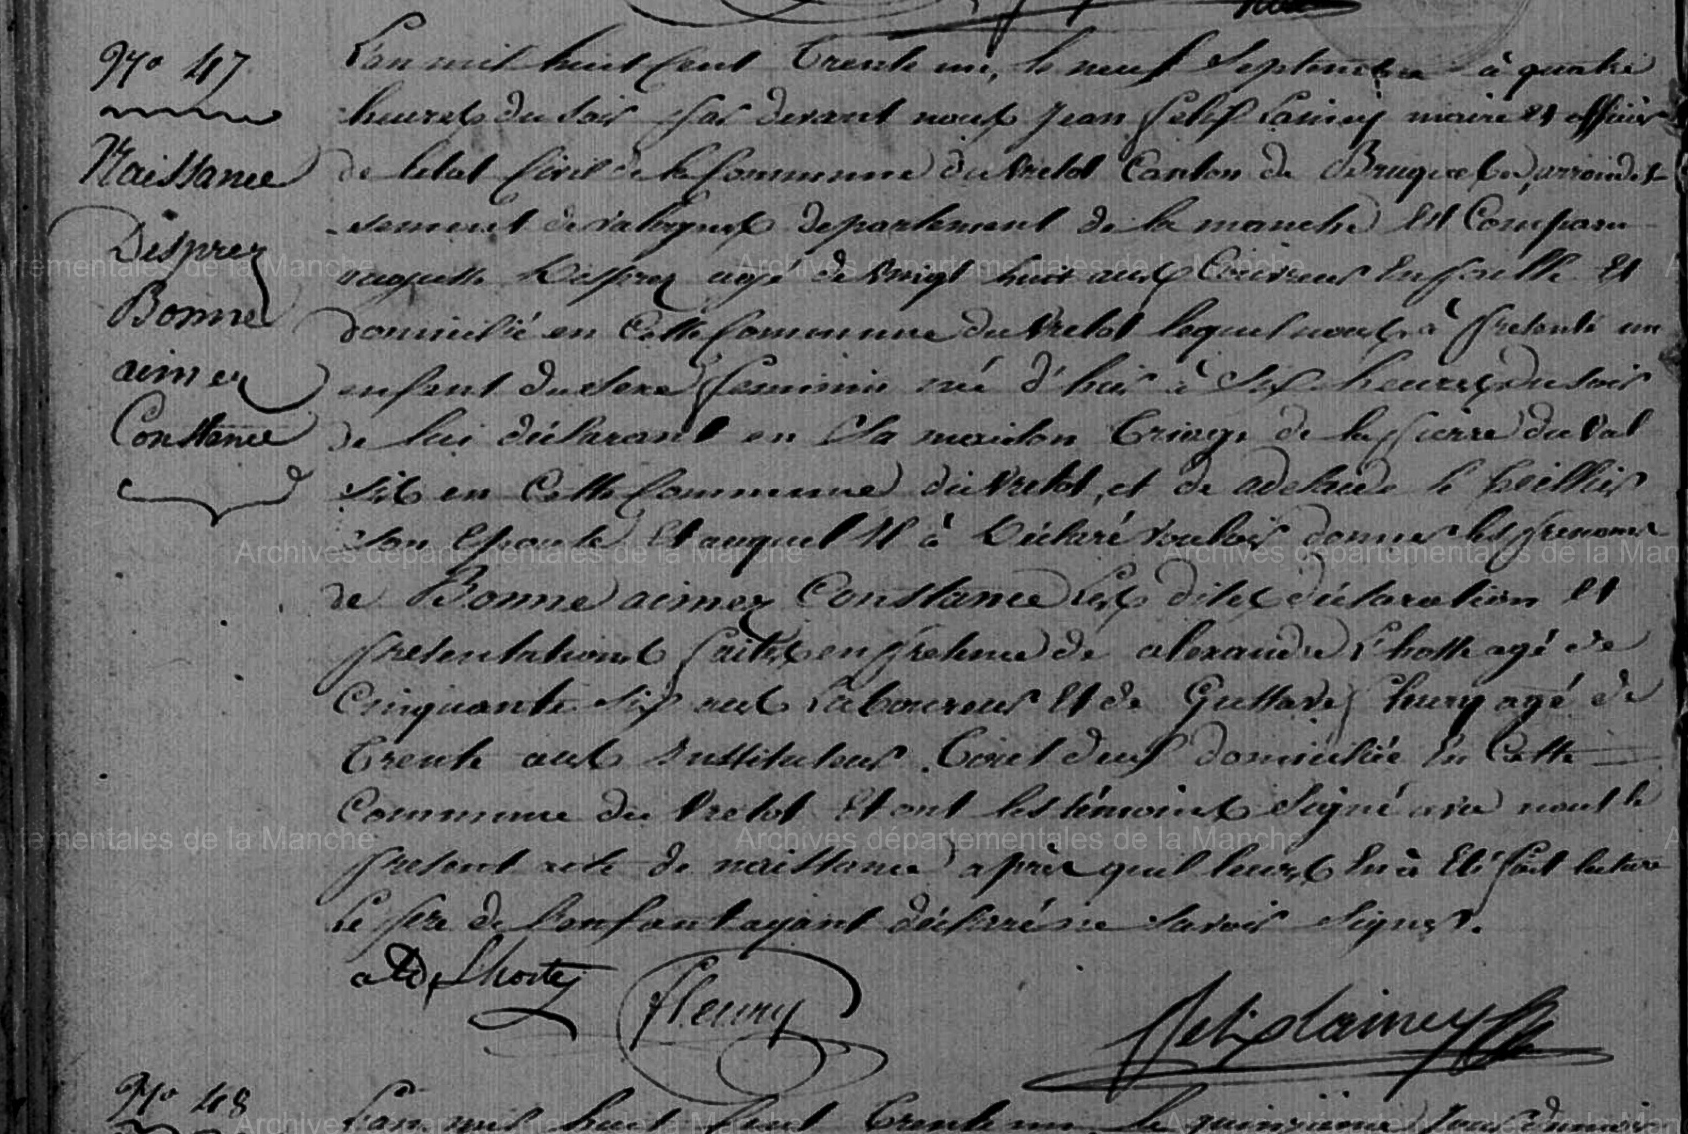 N° 47
Naissance
Desprez
Bonne
aimez
Constance
L'an mil huit Cent trente un, le neuf Septembre à quatre
heures du soir par devant nous Jean felix Lainey maire et officier
de letat Civil de la Commune du Vretot Canton de Bruquebec, arrondis-
-sement de valognes departement de la manche Est Comparu
Desprez agé de vingt huit ans Couvreur En paille Et
domicilié en Cette Commune du Vretot lequel nous à presenté un
enfant du sexe feminin né d'hier à Six heures du soir
de lui déclarant en Sa maison triage de la pierre du Val
sis en Cette Commune du Vretot, et de adelaide le
son Epouse Et auquel Il à Déclaré vouloir donner les prenoms
de Bonne aimez Constance Les dites déclaration Et
presentations faites en presence de alexandre Lhoste agé de
Cinquante six ans Laboureur Et de Gustave fleury agé de
trente ans Instituteur. tout deux domiciliée En Cette
Commune du Vretot Et ont les témoins Signé avec nous le
present acte de naissance après quil leurs En à Eté fait lecture
Le pere de Lenfant ayant déclaré ne savoir signer.
Lhostey
fleury
felix lainey
N° 48
L'an mil huit Cent trente un, le quinzième jour du mois
Archives départementales de la Manche